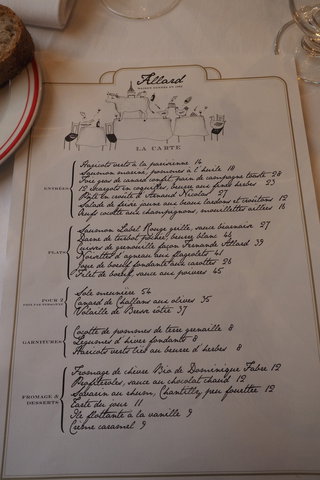 Allard
LA CARTE
ENTRÉES
Haricots verts à la parisienne 14
Saumon mariné, pommes à l'huile 18
Foie gras de canard confit, pain de campagne toasté 28
12 escargots en coquilles, beurre aux fines herbes 25
Pâté en croûte d'Arnaud Nicolas 27
Salade de frisée jaune aux beaux lardons et croûtons 12
Oeufs cocotte aux champignons, mouillettes aillées 16
PLATS
Saumon Label Rouge grillé, sauce béarnaise 27
Darne de turbot poché, beurre blanc 43
Cuisses de grenouille façon Fernande Allard 39
Noisettes d'agneau aux flageolets 41
Joue de boeuf fondante aux carottes 26
Filet de boeuf, sauce aux poivres 45
POUR 2
Sole meunière 54
Canard de Challans aux olives 35
Volaille de Bresse rôtie 37
GARNITURES
Cocotte de pommes de terre grenaille 8
Légumes d'hiver fondants 8
Haricots verts liés au beurre d'herbes 8
FROMAGE &
DESSERTS
Fromage de chèvre Bio de Dominique Fabre 12
Profiteroles, sauce au chocolat chaud 12
Savarin au rhum, Chantilly peu fouettée 12
Tarte du jour 11
Ile flottante à la vanille 9
Crème caramel 9